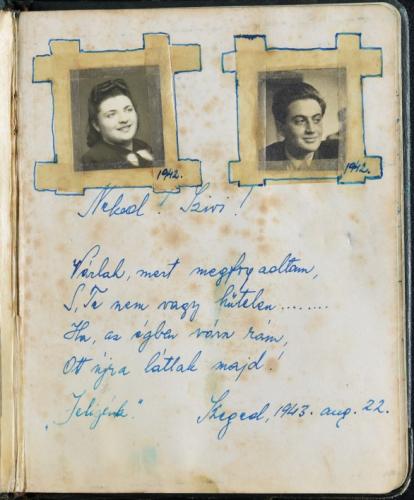 1942.
1942.
Neked! Szivi!
Várlak, mert megfogadtam,
S, Te nem vagy hűtelen........
Ha, az égben vársz rám,
Ott újra látlak majd!
Szeged, 1943. aug. 22.